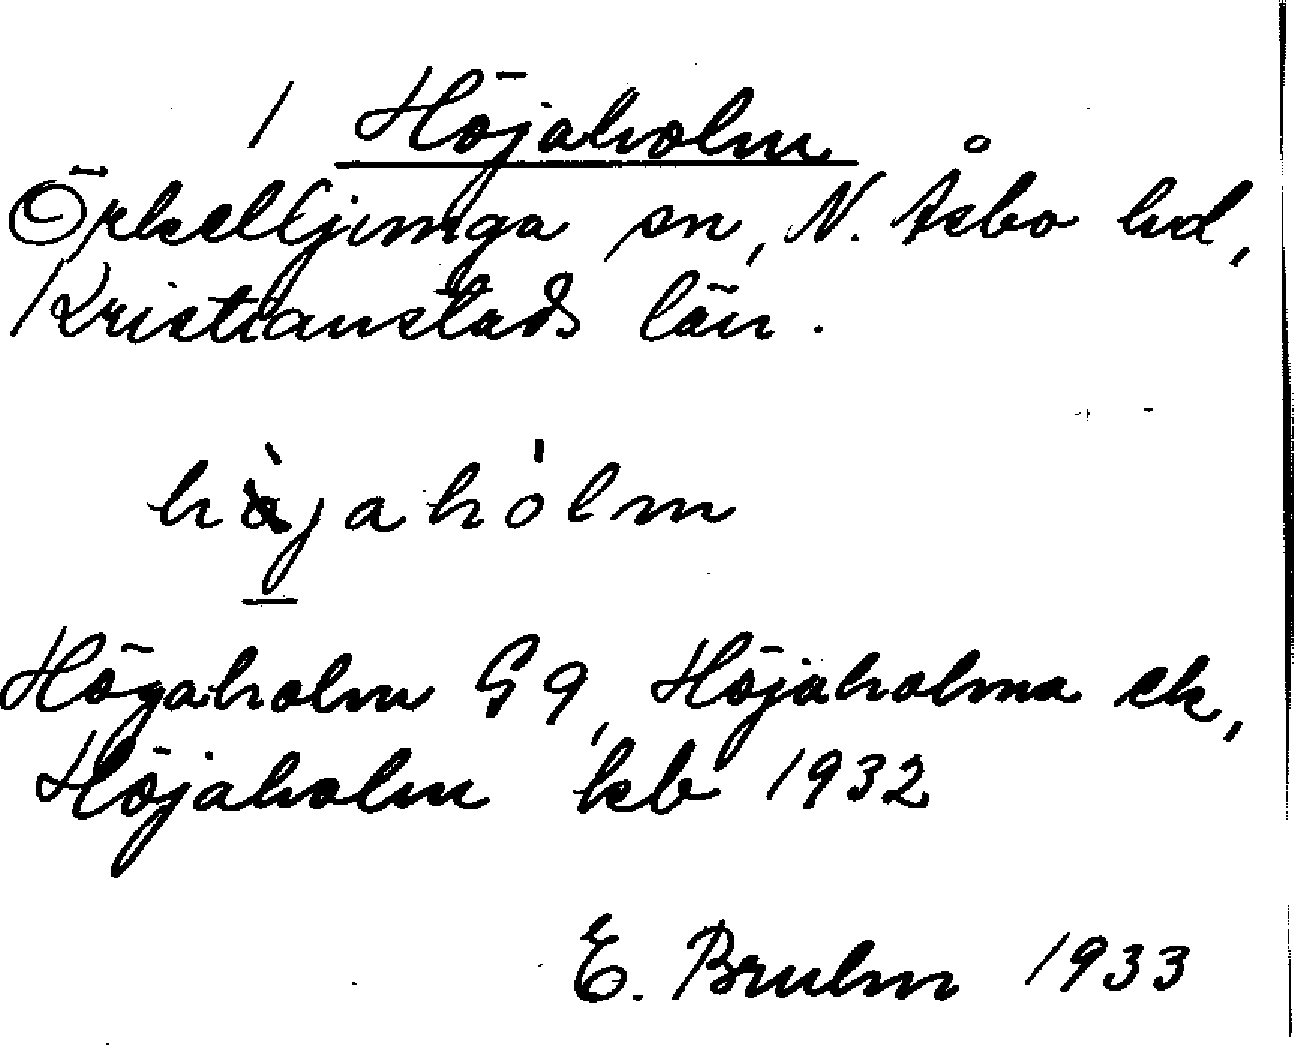 1 Höjaholm
Örkelljunga sn, N. Åsbo hd,
Kristianstads län.
hø̀jahólm
Högaholm G 9, Höjaholma ek,
Höjaholm kb 1932
E. Bruhn 1933